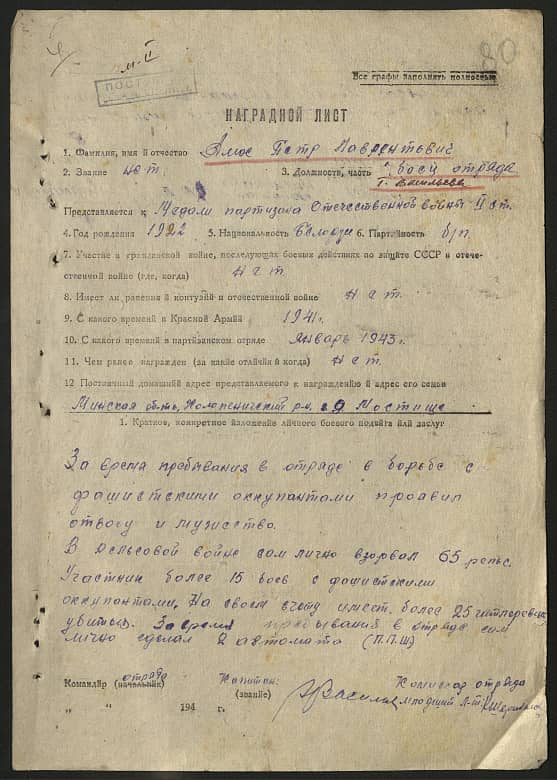 80
Все графы заполнять полностью
НАГРАДНОЙ ЛИСТ
1. Фамилия, имя й отчество Амос Петр Лаврентьевич
2. Звание нет. 3. Должность, часть боец отряда
т. Васильева
Представляется к Медали партизана Отечественной войны II ст.
4. Год рождения 1922 5. Национальность Белорус 6. Партийность б/п.
7. Участие в гражданской войне, последующих боевых действиях по защите СССР и отече-
ственной войне (где, когда) Нет
8. Имеет ли ранения й контузий и отечественной войне нет.
9. С какого времени в Красной Армий 1941г.
10. С какого временй в партйзанском отряде январь 1943г.
11. Чем ранее награжден (за какие отлйчйя й когда) нет.
12 Постоянный домашнйй адрес представляемого к награждению й адрес его семьи
Минская область, Холопеничский р-н, Мостище
1. Краткое, конкретное йзложение лйчного боевого подвйга йлй заслуг
За время пребывания в отряде в борьбе с
фашистскими оккупантами проявил
отвагу и мужество.
В рельсовой войне сам лично взорвал 65 рельс.
Участник более 15 боев с фашистскими
оккупантами. На своем счету имеет более 25 гитлеровцев
убитых. За время пребывания в отряде сам
лично сделал 2 автомата (П.П.Ш)
отряда
Командйр (начальник) Капитан: Комиссар отряда
(звание) Василь младший л-т.
" " 194 г.